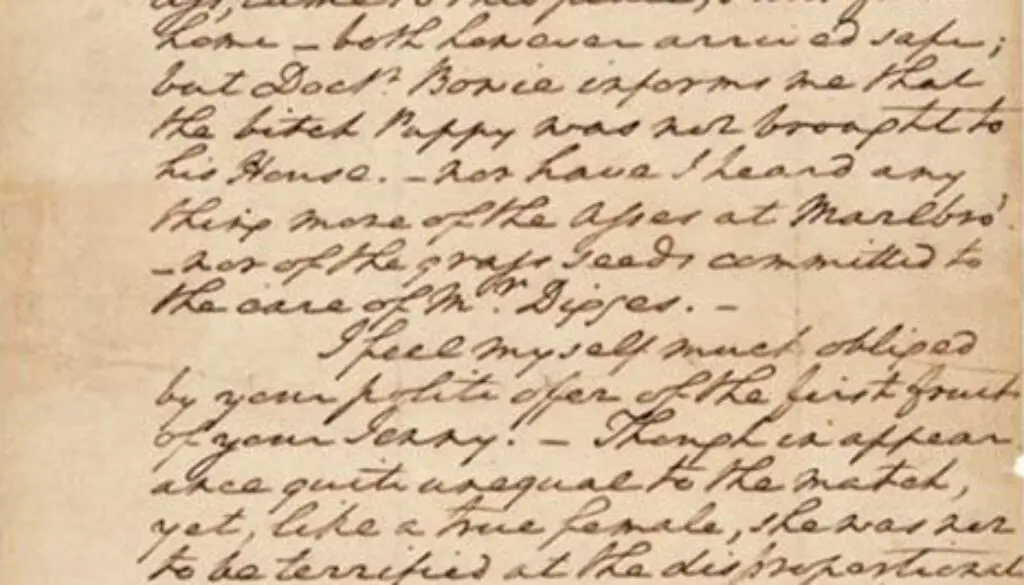 home – both however arrived safe;
but Doctr. Bowie informs me that
the bitch Puppy was not brought to
his House. – nor have I heard any
thing more of the Asses at Marlbro'.
– nor of the grass seeds committed to
the care of Mr. Digges. –
I feel myself much obliged
by your polite offer of the first fruit
of your Jenny. – Though in appear
ance quite unequal to the match,
yet, like a true female, she was not
to be terrified at the disproportional